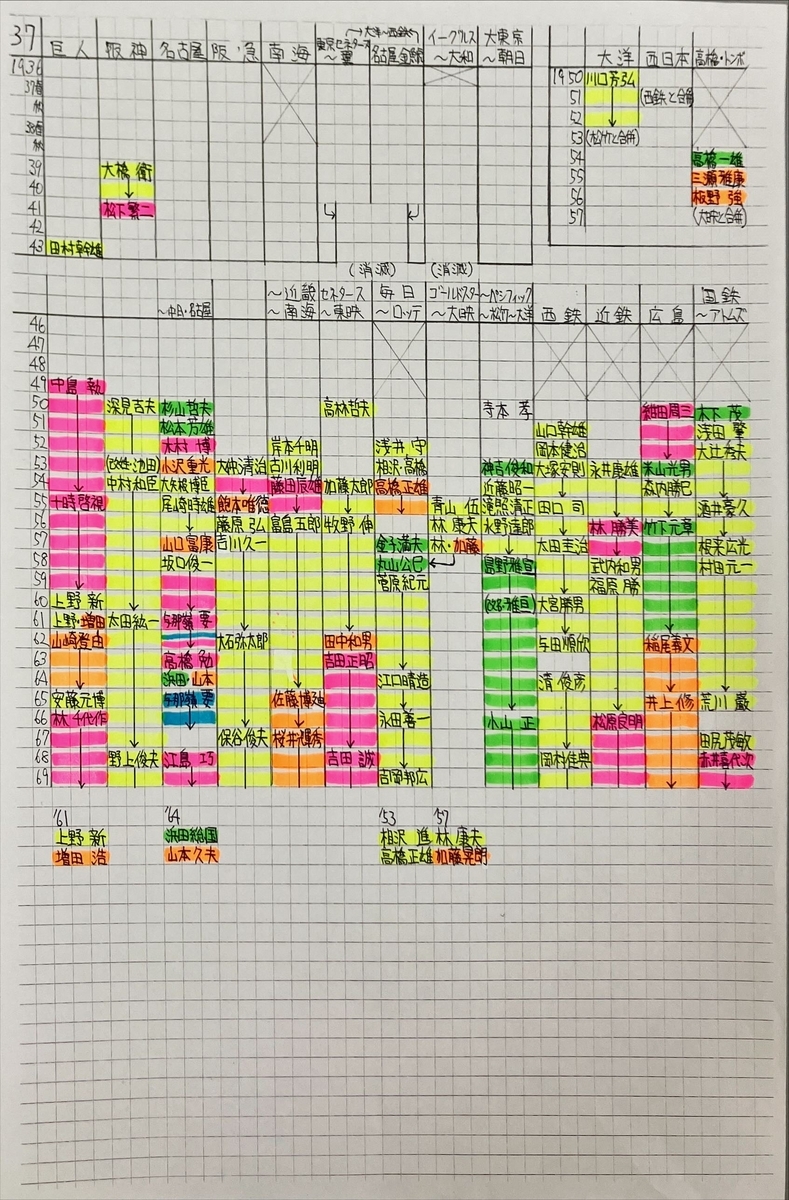 37 巨人 阪神 名古屋 阪急 南海 東京セネタース〜翼 →大洋〜西鉄← 名古屋金鯱 イーグルス〜大和 大東京〜朝日 大洋 西日本 高橋・トンボ
1936 1950 川口芳弘
37春 51 (西鉄と合併)
秋 52
38春 53 (松竹と合併)
秋 54 高橋一雄
39 大橋衛 55 三瀬雅康
40 56 板野強
41 松下繁二 57 (大映と合併)
42
43 田村幸雄
(消滅) (消滅)
〜中日・名古屋 〜近畿〜南海 セネタース〜東映 毎日〜ロッテ ゴールドスター〜大映 〜パシフィック〜松竹〜大洋 西鉄 近鉄 広島 国鉄〜アトムズ
46
47
48
49 中島執
50 深見吉夫 杉山哲夫 高林哲夫 寺本孝 紺田周三 木下茂
51 松本芳雄 山口幹雄 浅田肇
52 木村博 岸本千明 浅井守 岡本健治 大辻秀夫
53 (改姓・池田) 小沢重光 大仲清治 古川利明 相沢・高橋 神吉俊和 大塚安則 永井康雄 米山光男
54 中村和臣 大矢根博臣 藤田辰雄 加藤太郎 高橋正雄 近藤昭一 森内勝巳
55 十時啓視 尾崎時雄 飽本唯徳 青山伍 滝照清正 田口司 酒井豪久
56 藤原弘 富島五郎 牧野伸 林康夫 永野達郎 林勝美 竹下元章
57 山口富康 吉川久一 金子満夫 林・加藤 太田圭治 根来広光
58 坂口俊一 丸山公巳 島野雅亘 武内和男 村田元一
59 菅原紀元 福原勝
60 上野新 (改名・雅亘) 大宮勝男
61 上野・増田 太田紘一 与那嶺要
62 山崎登由 大石弥太郎 田中和男 与田順欣 稲尾義文
63 高橋勉 吉田正昭
64 浜田・山本 江口晴造 清俊彦
65 安藤元博 与那嶺要 佐藤博廸 井上修 荒川巌
66 林千代作 永田善一 小山正 松原良明
67 保谷俊夫 桜井輝秀 田尻茂敏
68 野上俊夫 江島巧 吉田誠 岡村佳典 赤井喜代次
69 吉岡邦広
'61 '64 '53 '57
上野新 浜田給国 相沢進 林康夫
増田浩 山本久夫 高橋正雄 加藤晃朗